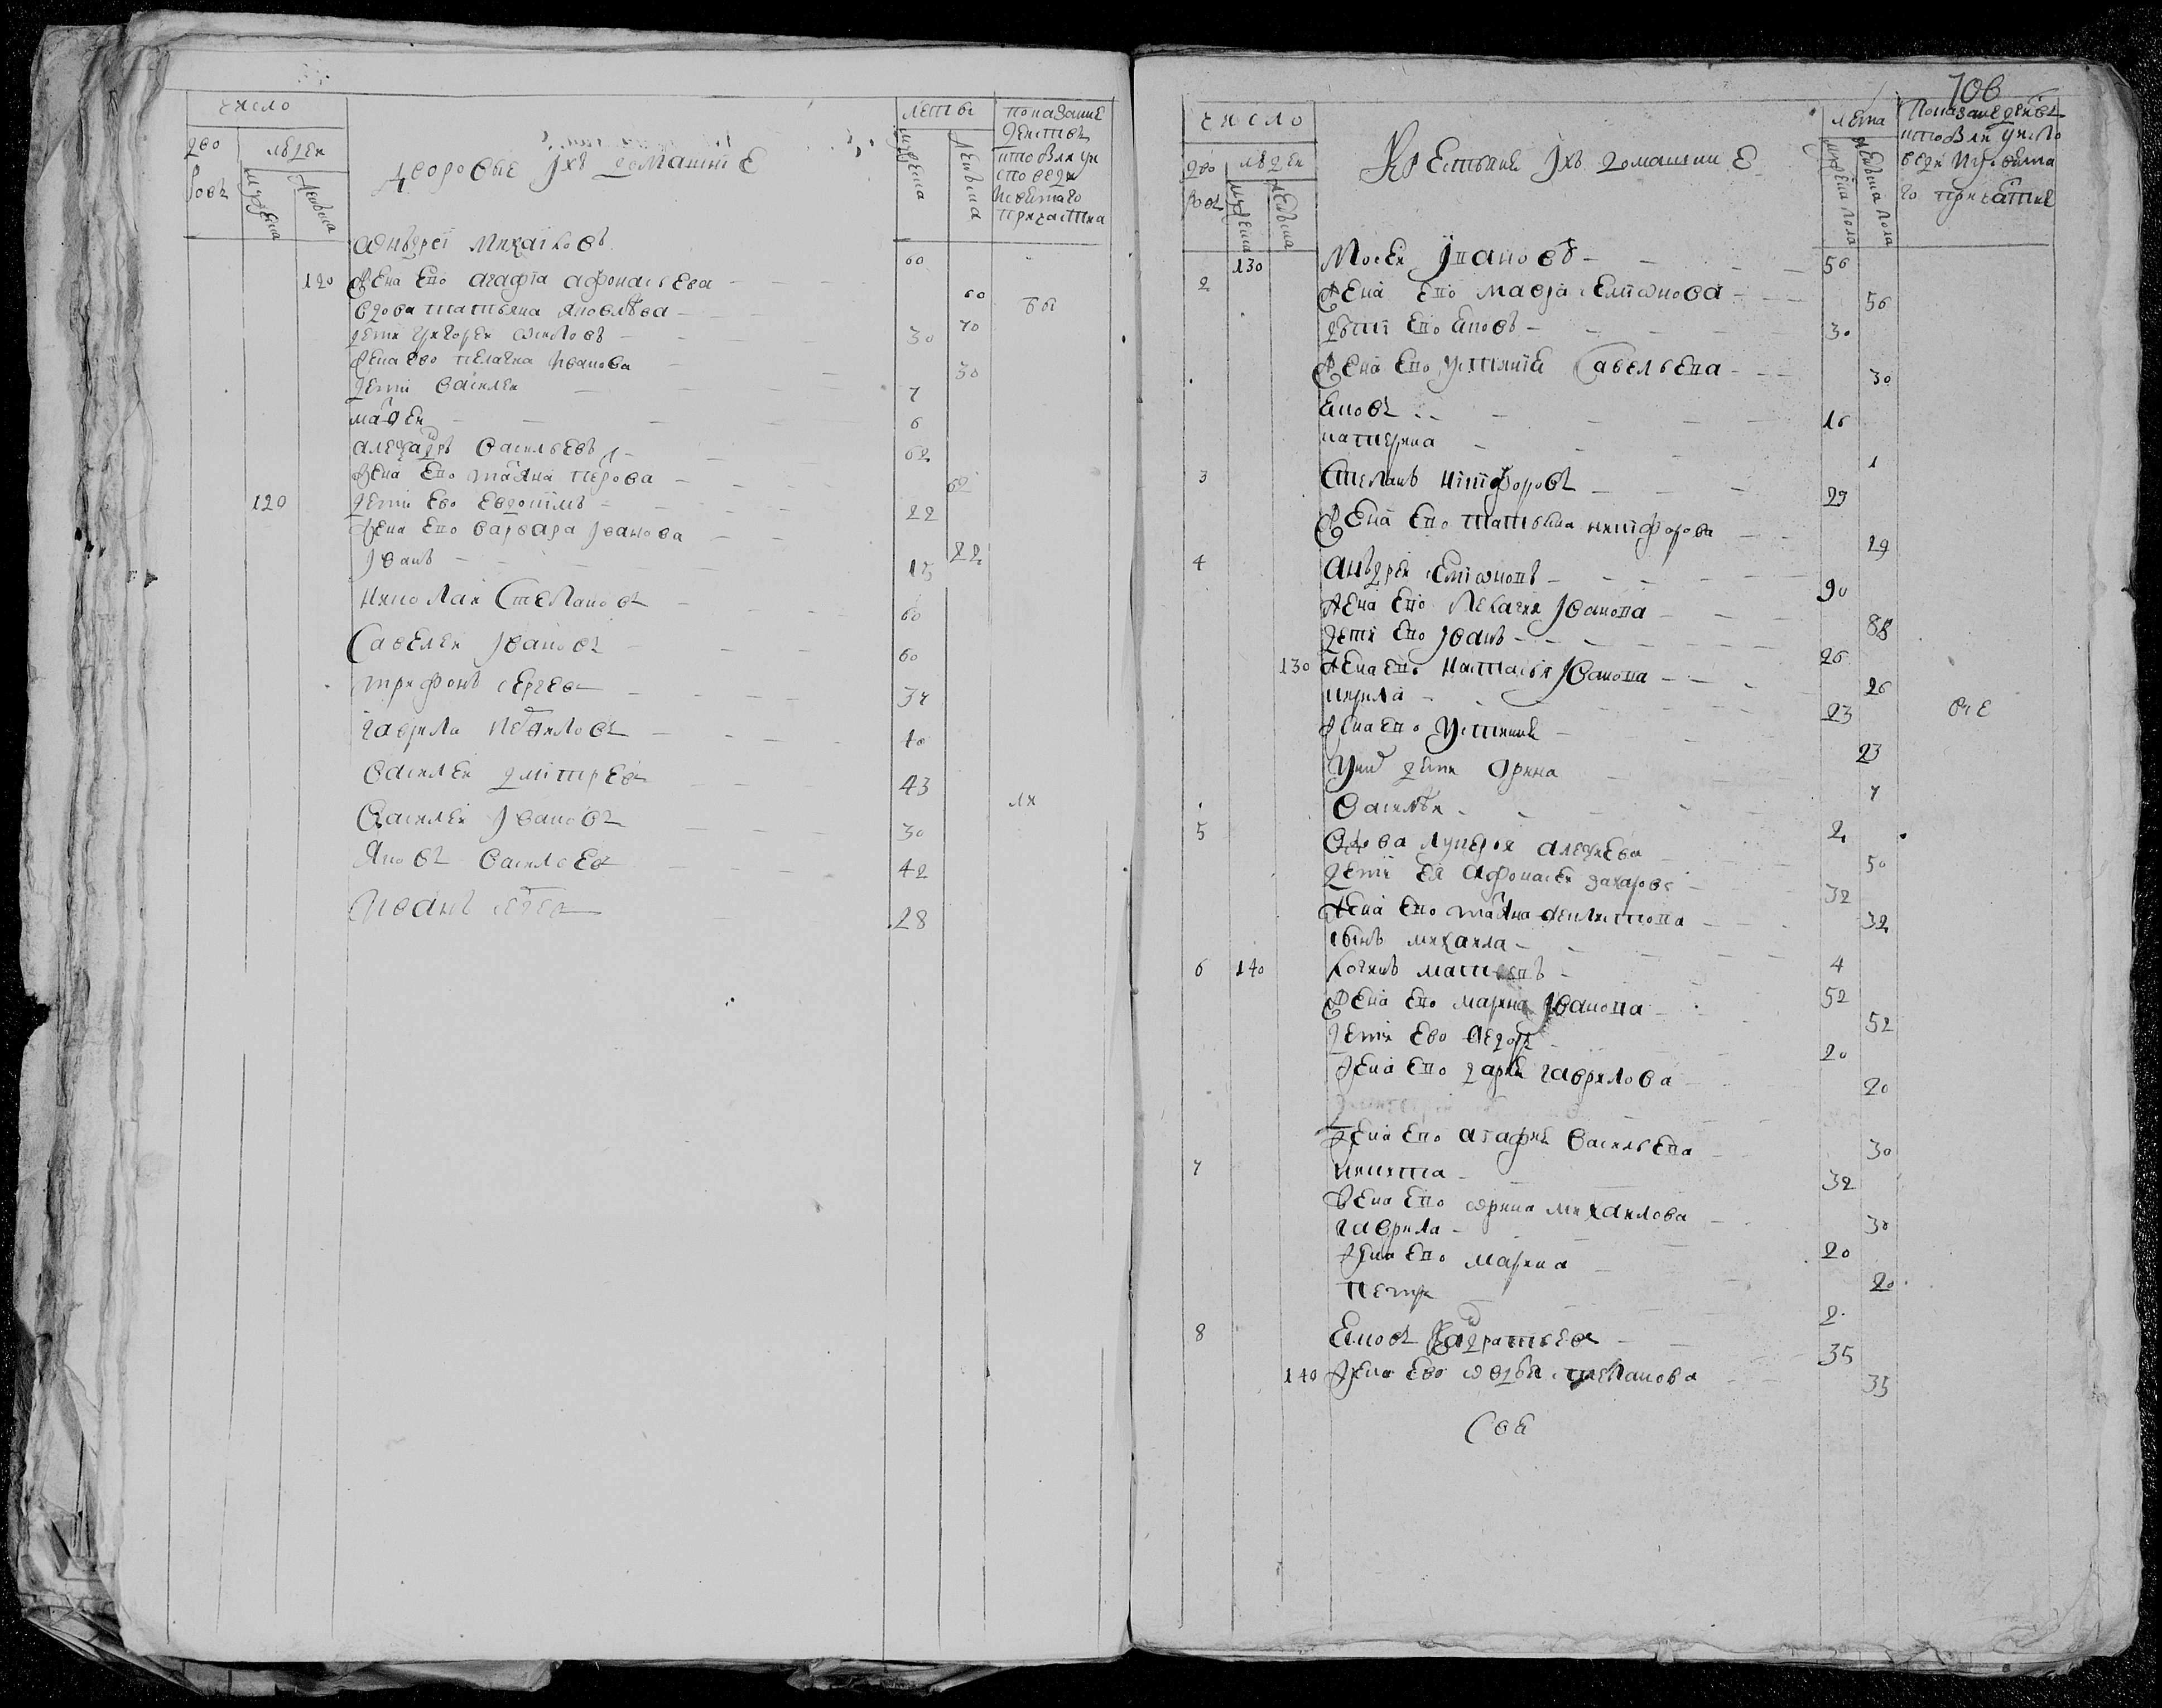 число
дво
ровъ
людеи
мужеска
женска
дворовые ихъ домашние
леты
мужеска
женска
показание
действъ
кто былъ у
споведи
исвятаго
причастиа
андреи михаиловъ 60
120 жена ево агафиа афонасьева 60
вдова татьяна яковлева 70
дети григореи 30
жена ево пелагиа иванова 30
дети василеи 7
матфеи 6
александръ васильевъ 62
жена ево татяна петрова 62
120 дети ево евдокимъ 22
жена ево варвара иванова 22
иванъ 15
николаи степановъ 60
савелеи ивановъ 60
трифонъ сергеевъ 34
гаврила 40
василеи дмитреевъ 43
василеи ивановъ 30
яковъ васильевъ 42
иванъ 28
бы
ли
706
число
дво
ровъ
людеи
мужеска
женска
крестьяне ихъ домашние
лета
мужеска пола
женска пола
показание действъ
кто были у испо
веди и у святa
го причастие
130 Мосеи ивановъ 56
2 жена ево мавра симионова 56
дети ево яковъ 30
жена ево устиниа савельева 30
яковъ 16
катерина 1
3 Степанъ никифоровъ 29
жена ево татьяна никифорова 29
4 андреи симионовъ 90
жена ево пелагия иванова 88
дети ево иванъ 26
130 жена ево настасья иванова 26
кирила 23
жена ево устиния 23
у них дети орина 7
василеи 2
5 вдова лукерья алексеева 50
дети ея афонасеи захаровъ 32
жена ево татяна феклистова 32
сынъ михаила 4
6 140 логинъ матвеевъ 52
жена ево марина иванова 52
дети ево федоръ 20
жена ево дария гаврилова 20
жена ево агафия васильева 30
7 никита 32
жена ево орина михаилова 30
гаврила 20
жена ево марина 20
петръ 2
8 яковъ 35
140 жена ево авдотья степанова 35
все